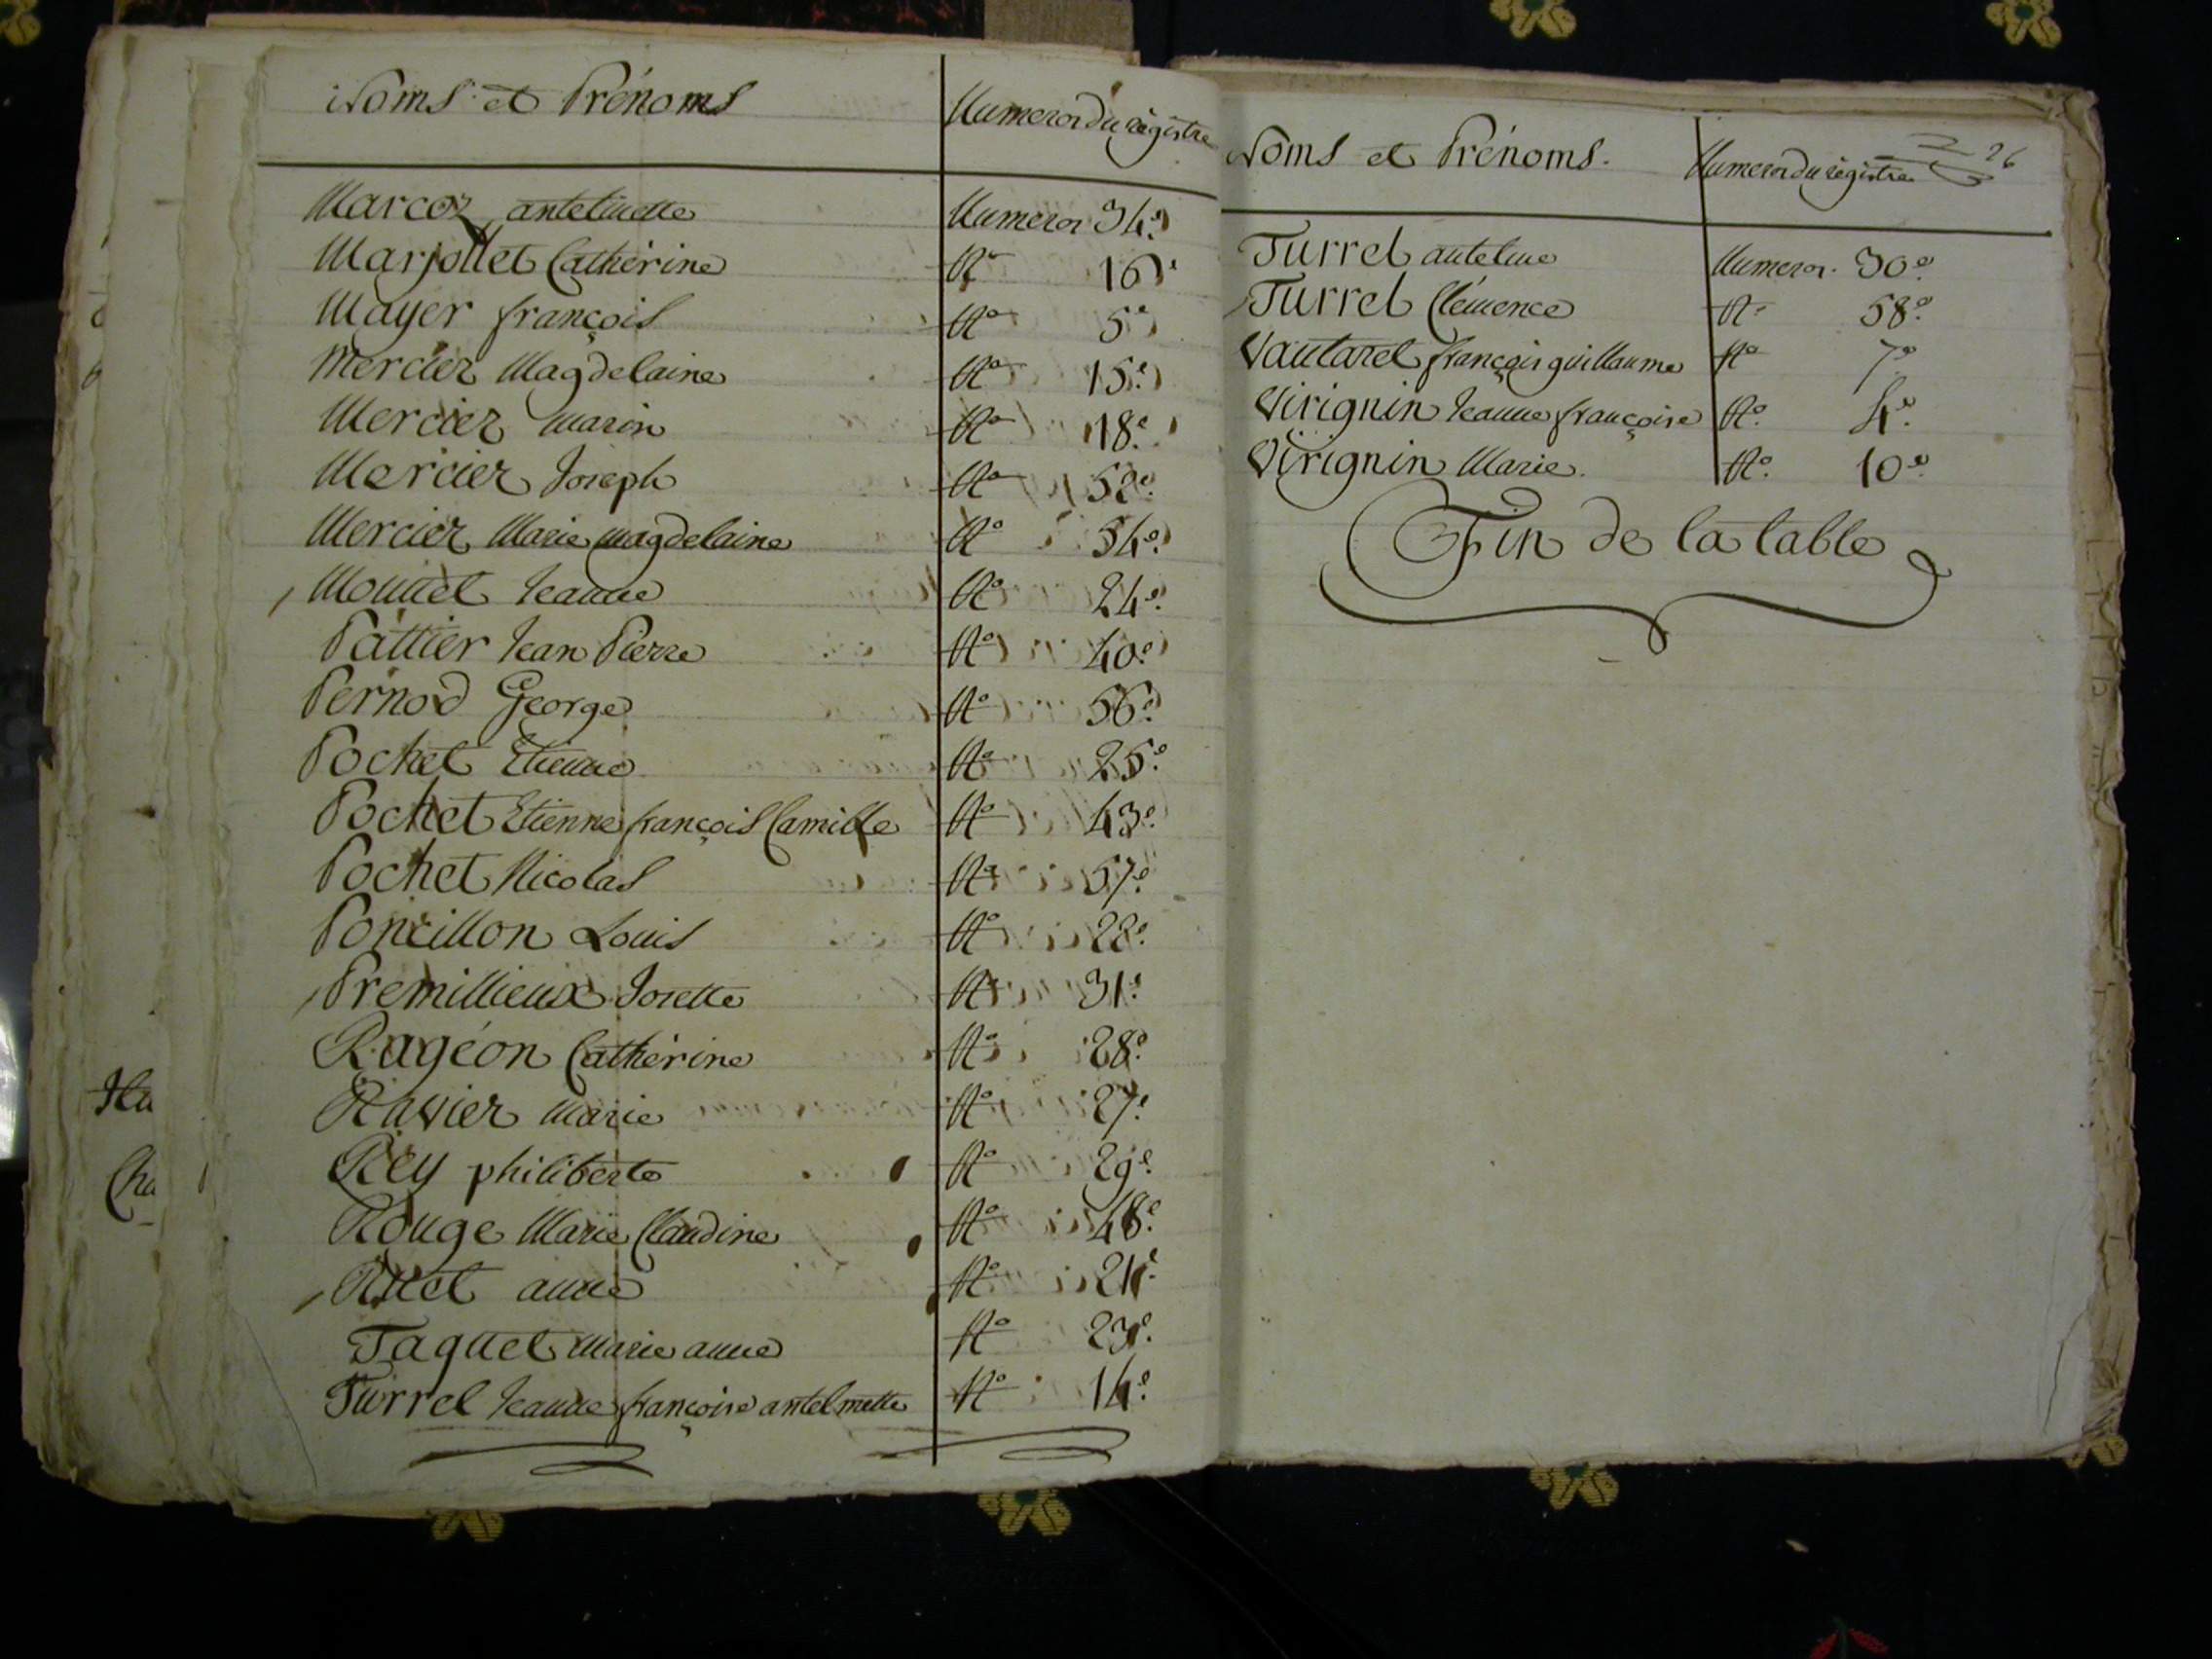 Noms et Prénoms
Numeros du régistre
Marcoz antelmette Numeros 34.e
Marjollet Cathérine No 16e
Mayer françois No 5e
Mercier Magdelaine No 15.e
Mercier marin No 18.e
Mercier Joseph No 52.e
Mercier Marie magdelaine No 54.e
Monnet Jeanne No 24.e
Pattier Jean Pierre No 40.e
Pernod George No 56.e
Pochet Etienne No 25.e
Pochet Etienne françois Camille No 43.e
Pochet Nicolas No 57.e
Poncillon Louis No 22.e
Premillieux Josette No 31.e
Ragéon Cathérine No 28.e
Ravier marie No 27.e
Rey philiberte No 29.e
Rouge Marie Claudine No 48.e
anne No 21.e
Taquet marie anne No 23.e
Turrel Jeanne françoise antelmette No 14.e
Hu
Cha
Noms et Prénoms.
Numeros du régistre
26
Turrel antelme Numeros. 30.e
Turrel Clémence No 58.e
Vautaret françois guillaume No 7.e
Virignin Jeanne françoise No. 4.e
Virignin Marie. No. 10.e
Fin de la table